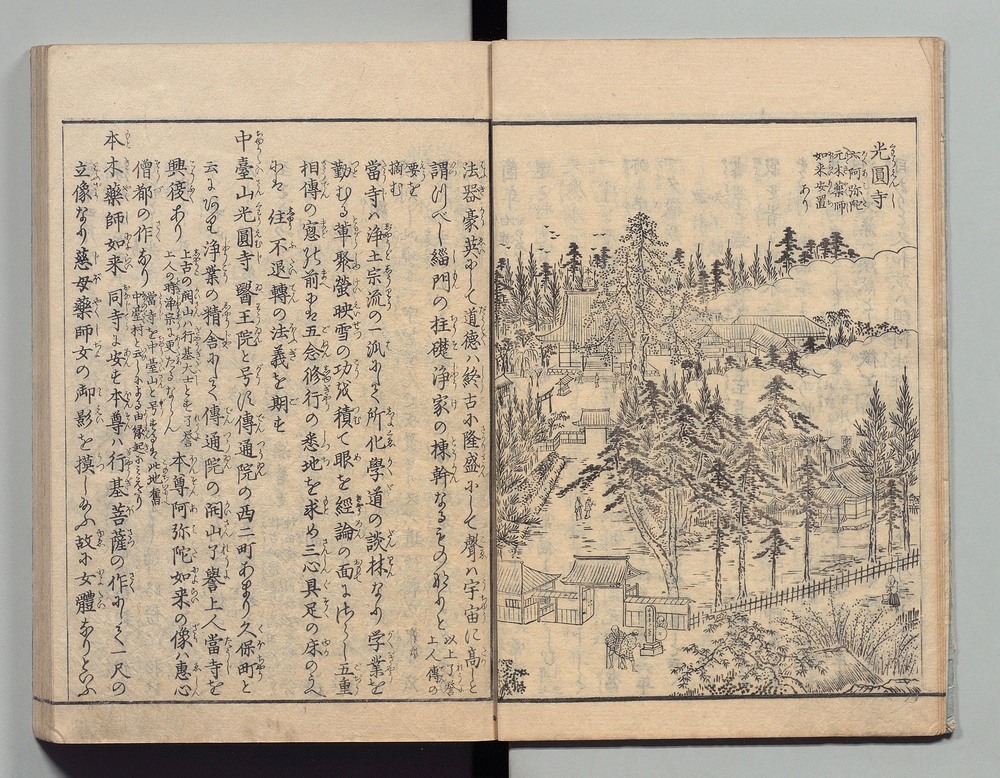 光圓寺
六阿弥陀
元木薬師
如来安置
あり
法器豪英にして道徳ハ終古に隆盛にして聲ハ宇宙に高しと
謂つべし緇門の柱礎浄家の棟幹なるものなりと 以上了誉
上人傳の
要を
摘む
當寺ハ浄土宗流の一派にして所化學道の談林なり学業を
勤むる輩聚螢映雪の功を積て眼を經論の面にさらし五重
相傳の窓の前には五念修行の悉地を求め三心具足の床のうへ
には往不退轉の法義を期す
中臺山光圓寺 醫王院と号す傳通院の西二町あまり久保町と
云にあり浄業の精舎にして傳通院の開山了譽上人當寺を
興復あり 上古の開山ハ行基大士とす了誉
上人の時浄宗に更たるならん 本尊阿弥陀如来の像ハ惠心
僧都の作なり 當寺を中臺山と号するは此地舊
中臺村と云しによる由縁起にみえたり
本木薬師如来 同寺に安す本尊ハ行基菩薩の作にして一尺の
立像なり慈母薬師女の御影を摸しゐふ故に女體なりといふ